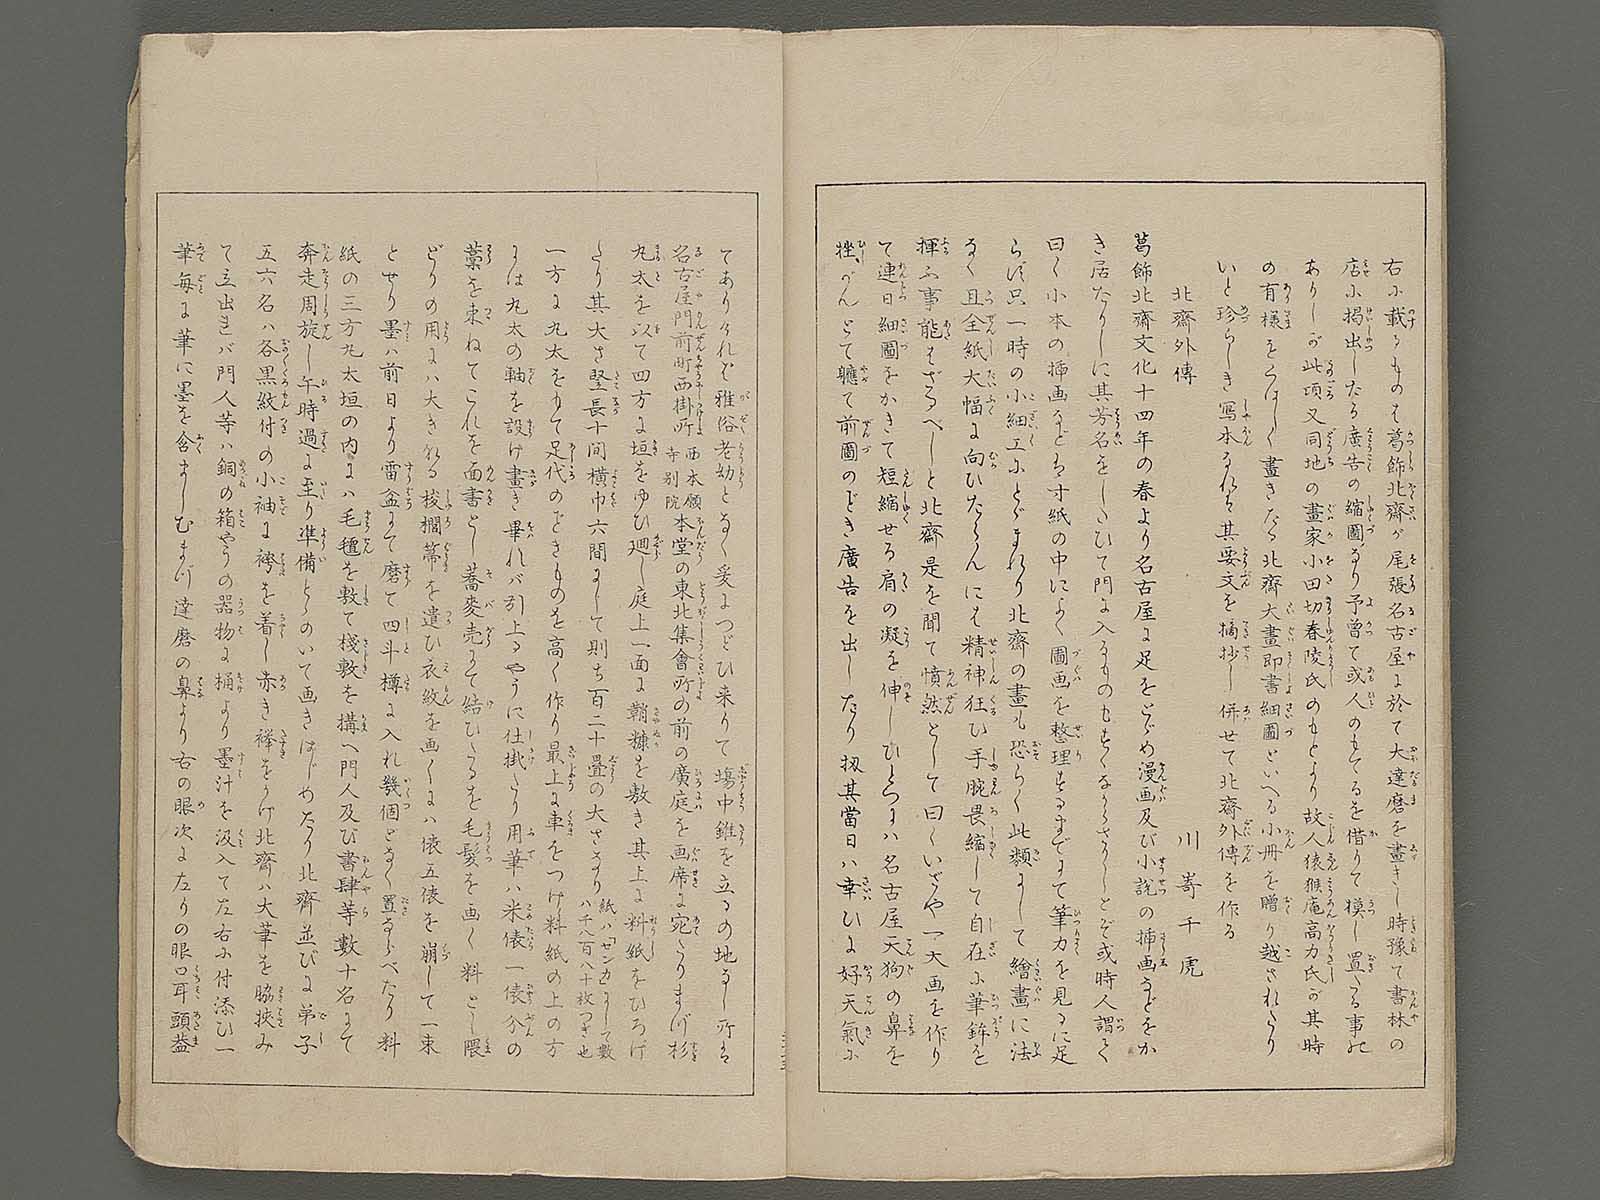 右に載るものは葛飾北齋が尾張名古屋に於て大達磨を畫きし時豫て書林の
店に掲出したる廣告の縮圖なり予曾て或人のもてるを借りて摸し置たる事の
ありしが此頃又同地の畫家小田切春陵氏のもとより故人猿猴庵高力氏が其時
の有様をくはしく畫きたる北齋大畫即書細圖といへる小冊を贈り越されたり
いと珍らしき写本なれば其要文を摘抄し併せて北齋外傳を作る
北齋外傳
川嵜千虎
葛飾北齋文化十四年の春より名古屋に足をとゞめ漫画及び小説の挿画などをか
き居たりしに其芳名をしたひて門に入るものもすくなからざりしとぞ或時人謂て
曰く小本の挿画など方寸紙の中によく圖画を整理するまでにて筆力を見るに足
らず只一時の小細工にとゞまれり北齋の畫も恐らく此類にして繪畫に法
なく且全紙大幅に向ひたらんには精神狂ひ手腕畏縮して自在に筆鉾を
揮ふ事能はざるべしと北齋是を聞て憤然として曰くいざや一大画を作り
て連日細圖をかきて短縮せる肩の凝を伸しひとつは名古屋天狗の鼻を
挫がんとて軈て前圖のごとき廣告を出したり扨其當日ハ幸ひに好天氣に
てありければ雅俗老幼となく爰につどひ来りて塲中錐を立るの地なし所は
名古屋門前町西掛所西本願寺別院本堂の東北集會所の前の廣庭を画席に宛たりまづ杉
丸太を以て四方に垣をゆひ廻し庭上一面に鞘糠を敷き其上に料紙をひろげ
たり其大さ竪長十間横巾六間にして則ち百二十畳の大さなり紙ハ「ゼンカ」にして數ハ千八百八十枚つぎ也
一方に丸太をもて足代のごときものを高く作り最上に車をつけ料紙の上の方
には丸太の軸を設け畫き畢れバ引上るやうに仕掛たり用筆ハ米俵一俵分の
藁を束ねてこれを面書とし蕎麥売にて結ひたるを毛髪を画く料とし隈
どりの用にハ大きなる棕櫚箒を遣ひ衣紋を画くにハ俵五俵を崩して一束
とせり墨ハ前日より雷盆にて磨て四斗樽に入れ幾個となく置ならべたり料
紙の三方丸太垣の内にハ毛氊を敷て棧敷を搆へ門人及び書肆等數十名にて
奔走周旋し午時過に至り準備とゝのいて画きはじめたり北齋並びに弟子
五六名ハ各黒紋付の小袖に袴を着し赤き襷をかけ北齋ハ大筆を脇挾み
て立出れバ門人等ハ銅の箱やうの器物に桶より墨汁を汲入て左右に付添ひ一
筆毎に筆に墨を含ましむまづ達磨の鼻より右の眼次に左りの眼口耳頭盖